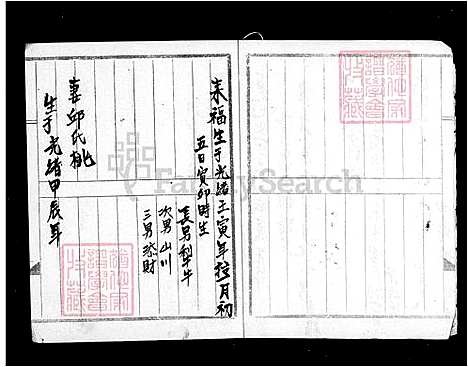 來福生于光緒壬寅年拾月初
五日寅卯時生
長男犁牛
次男山川
三男添財
妻邱氏桃
生于光緒甲辰年
FamilySearch